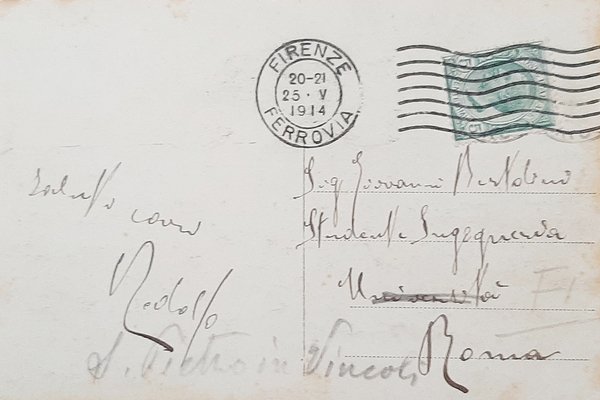 FIRENZE
20-21
25 · V
1914
FERROVIA
Saluti cari
Rodolfo
Sig Giovanni Bertolini
Studente Ingegneria
Università
Roma
S. Pietro in Vincoli